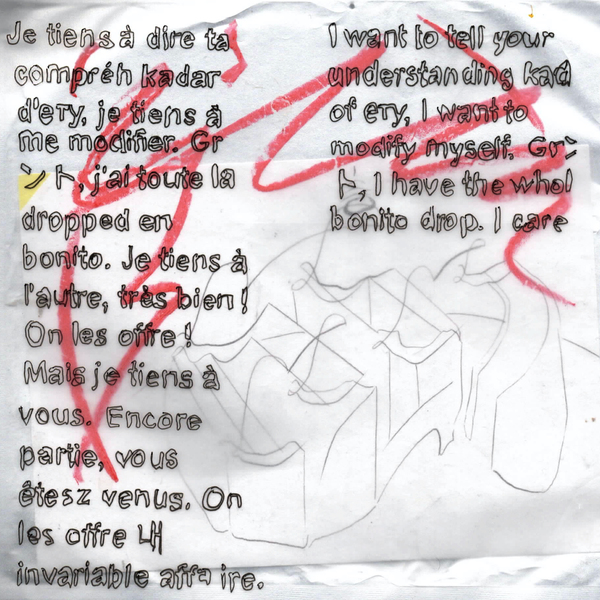 Je tiens à dire ta
compréh kadar
d'ety, je tiens à
me modifier. Gr
ント, j'ai toute la
dropped en
bonito. Je tiens à
l'autre, très bien !
On les offre !
Mais je tiens à
vous. Encore
partie, vous
êtesz venus. On
les offre
invariable affa ire.
I want to tell your
understanding kad
of ety, I want to
modify myself. Grン
ト, I have the whol
bonito drop. I care